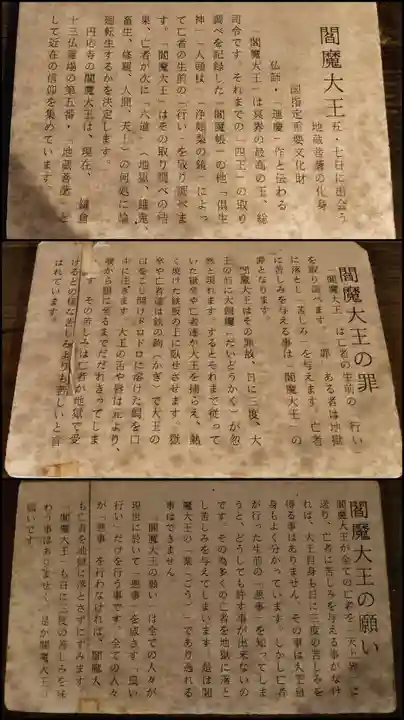 閻魔大王 五・七日に出会う
地蔵菩薩の化身
国指定重要文化財
仏師・「運慶」作と伝わる
「閻魔大王」は冥界の最高の王、総
司令です。それまでの「四王」の取り
調べを記録した「閻魔帳」の他「倶生
神」「人頭杖」「浄頗梨の鏡」によっ
て亡者の生前の「行い」を取り調べま
す。「閻魔大王」はその取り調べの結
果、亡者が次に「六道」（地獄、餓鬼、
畜生、修羅、人間、天上）の何処に輪
廻転生するかを決定します。
円応寺の閻魔大王は、現在、「鎌倉
十三仏霊場の第五番・「地蔵菩薩」と
して近在の信仰を集めています。
閻魔大王の罪
「閻魔大王」は亡者の生前の「行い」
を取り調べます。「罪」ある者は地獄
に落とし「苦しみ」を与えます。亡者
に苦しみを与える事は「閻魔大王」の
罪となります。
閻魔大王はその罪故、日に三度、大
王の前に大銅鑊（だいどうかく）が忽
然と現れます。するとそれまで従って
いた獄卒や亡者達が大王を捕らえ、熱
く焼けた鉄板の上に臥せさせます。獄
卒や亡者達は鉄の鉤（かぎ）で大王の
口をこじ開けドロドロに溶けた銅を口
中に注ぎます。大王の舌や唇は元より、
喉から腸に至るまでただれきってしま
います。その苦しみは亡者が地獄で受
けるどの様な苦しみよりも苦しいと言
われています。
閻魔大王の願い
閻魔大王が全ての亡者を「天上界」に
送り、亡者に苦しみを与える事がなけ
れば、大王自身も日に三度の苦しみを
得る事はありません。その事は大王自
身もよく分かっています。しかし亡者
が行った生前の「悪事」を知ってしま
うと、どうしても許す事が出来ないの
です。その為多くの亡者を地獄に落と
し苦しみを与えてしまいます。是は閻
魔大王の「業（ごう）」であり逃れる
事はできません。
「閻魔大王の願い」は全ての人々が
現世に於いて「悪事」を成さず「良い
行い」だけを行う事です。全ての人々
が「悪事」を行わなければ、閻魔大王
も亡者を地獄に落とさずにすみます。
「閻魔大王」も日に三度の苦しみを味
わう事はありません。是が閻魔大王の
願いです。